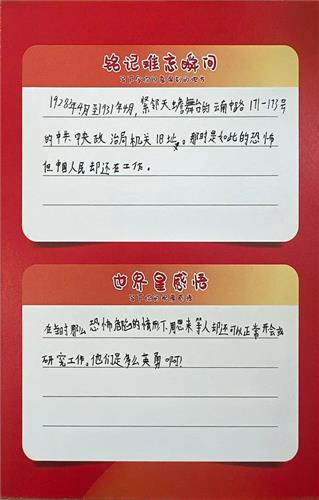 铭记难忘瞬间
1928年4月至1931年4月,紧邻天蟾舞台的云南中路171-173号
的中共中央政治局机关旧址。那时是如此的恐怖
但中国人民却还在工作。
世界星感悟
在如那么恐怖危险的情形下,周恩来等人却还可以正常开会或
研究工作。他们是多么英勇啊!